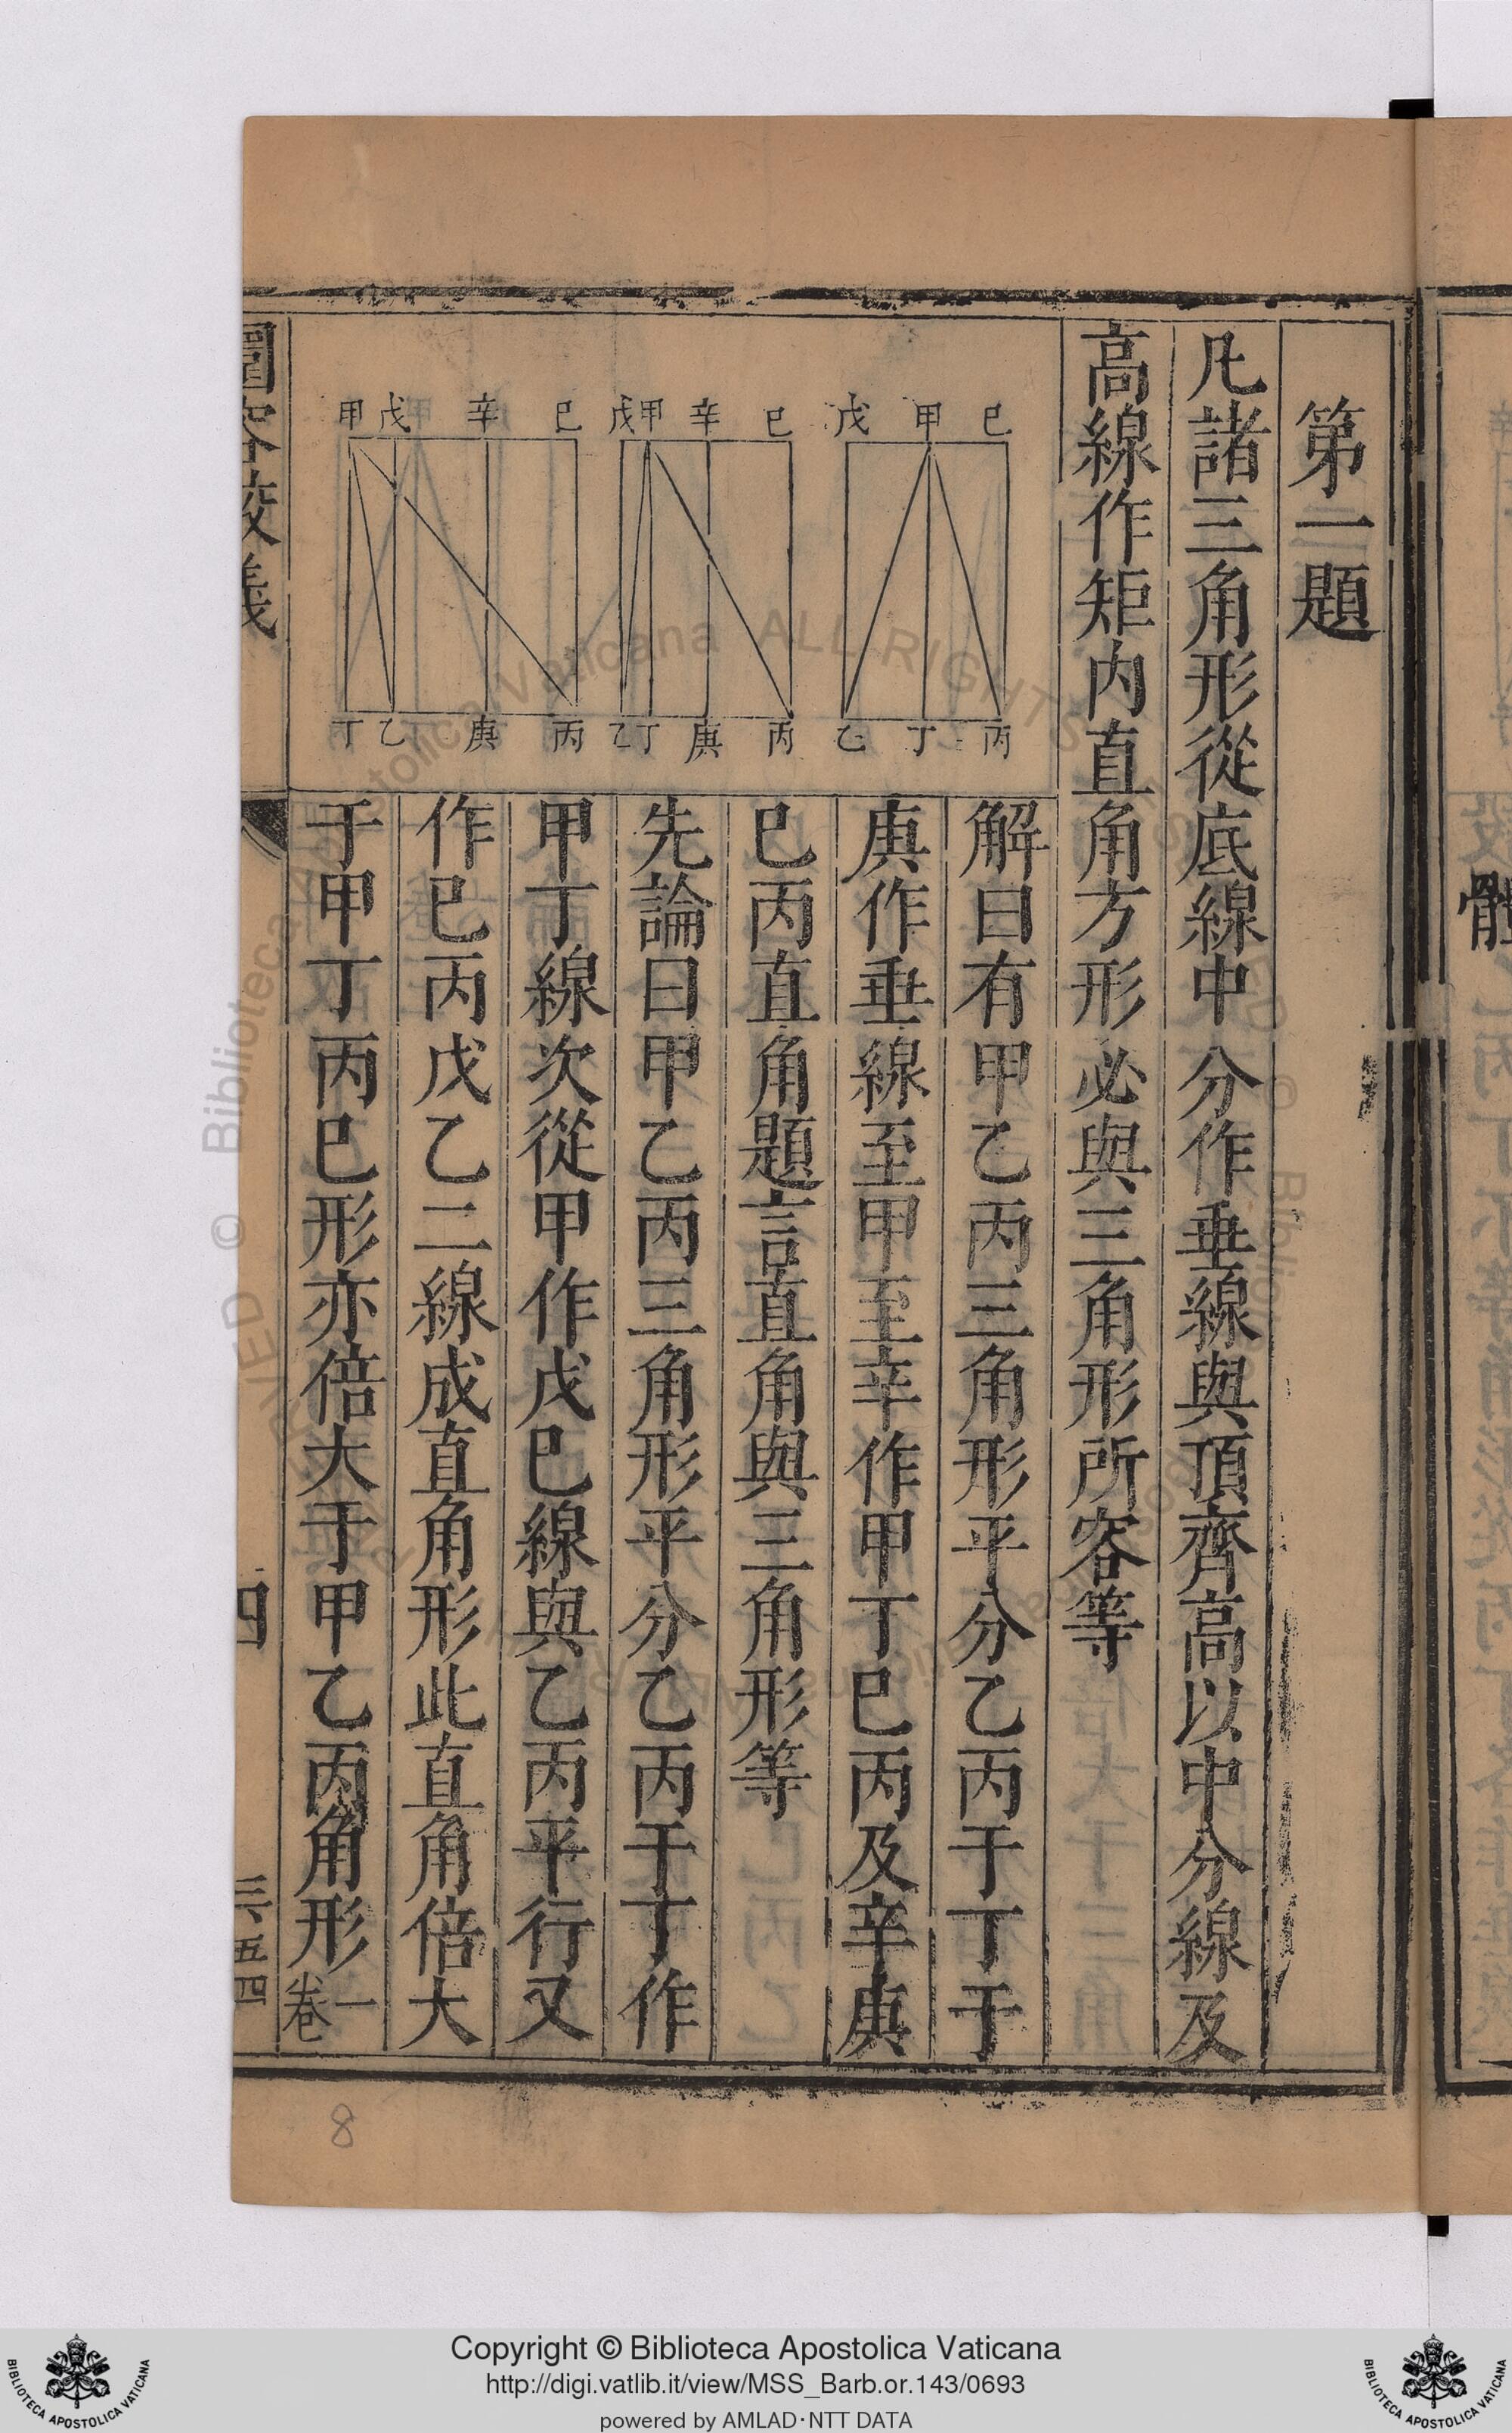 第一題
凡諸三角形從底線中分作垂線與頂齊高以中分線及
高線作矩内直角方形必與三角形所容等
巳 甲 戊
丙 丁 乙
巳 辛 甲 戊
丙 庚 丁 乙
巳 辛 戊 甲
丙 庚 乙 丁
解曰有甲乙丙三角形平分乙丙于丁于
庚作垂線至甲至辛作甲丁巳丙及辛庚
巳丙直角題言直角與三角形等
先論曰甲乙丙三角形平分乙丙于丁作
甲丁線次從甲作戊巳線與乙丙平行又
作巳丙戊乙二線成直角形此直角倍大
于甲丁丙巳形亦倍大于甲乙丙角形
卷一
圜容較義
四
三、五四
體
8
© Biblioteca Apostolica Vaticana ALL RIGHTS RESERVED
Copyright © Biblioteca Apostolica Vaticana
http://digi.vatlib.it/view/MSS_Barb.or.143/0693
powered by AMLAD·NTT DATA
BIBLIOTECA APOSTOLICA VATICANA
BIBLIOTECA APOSTOLICA VATICANA